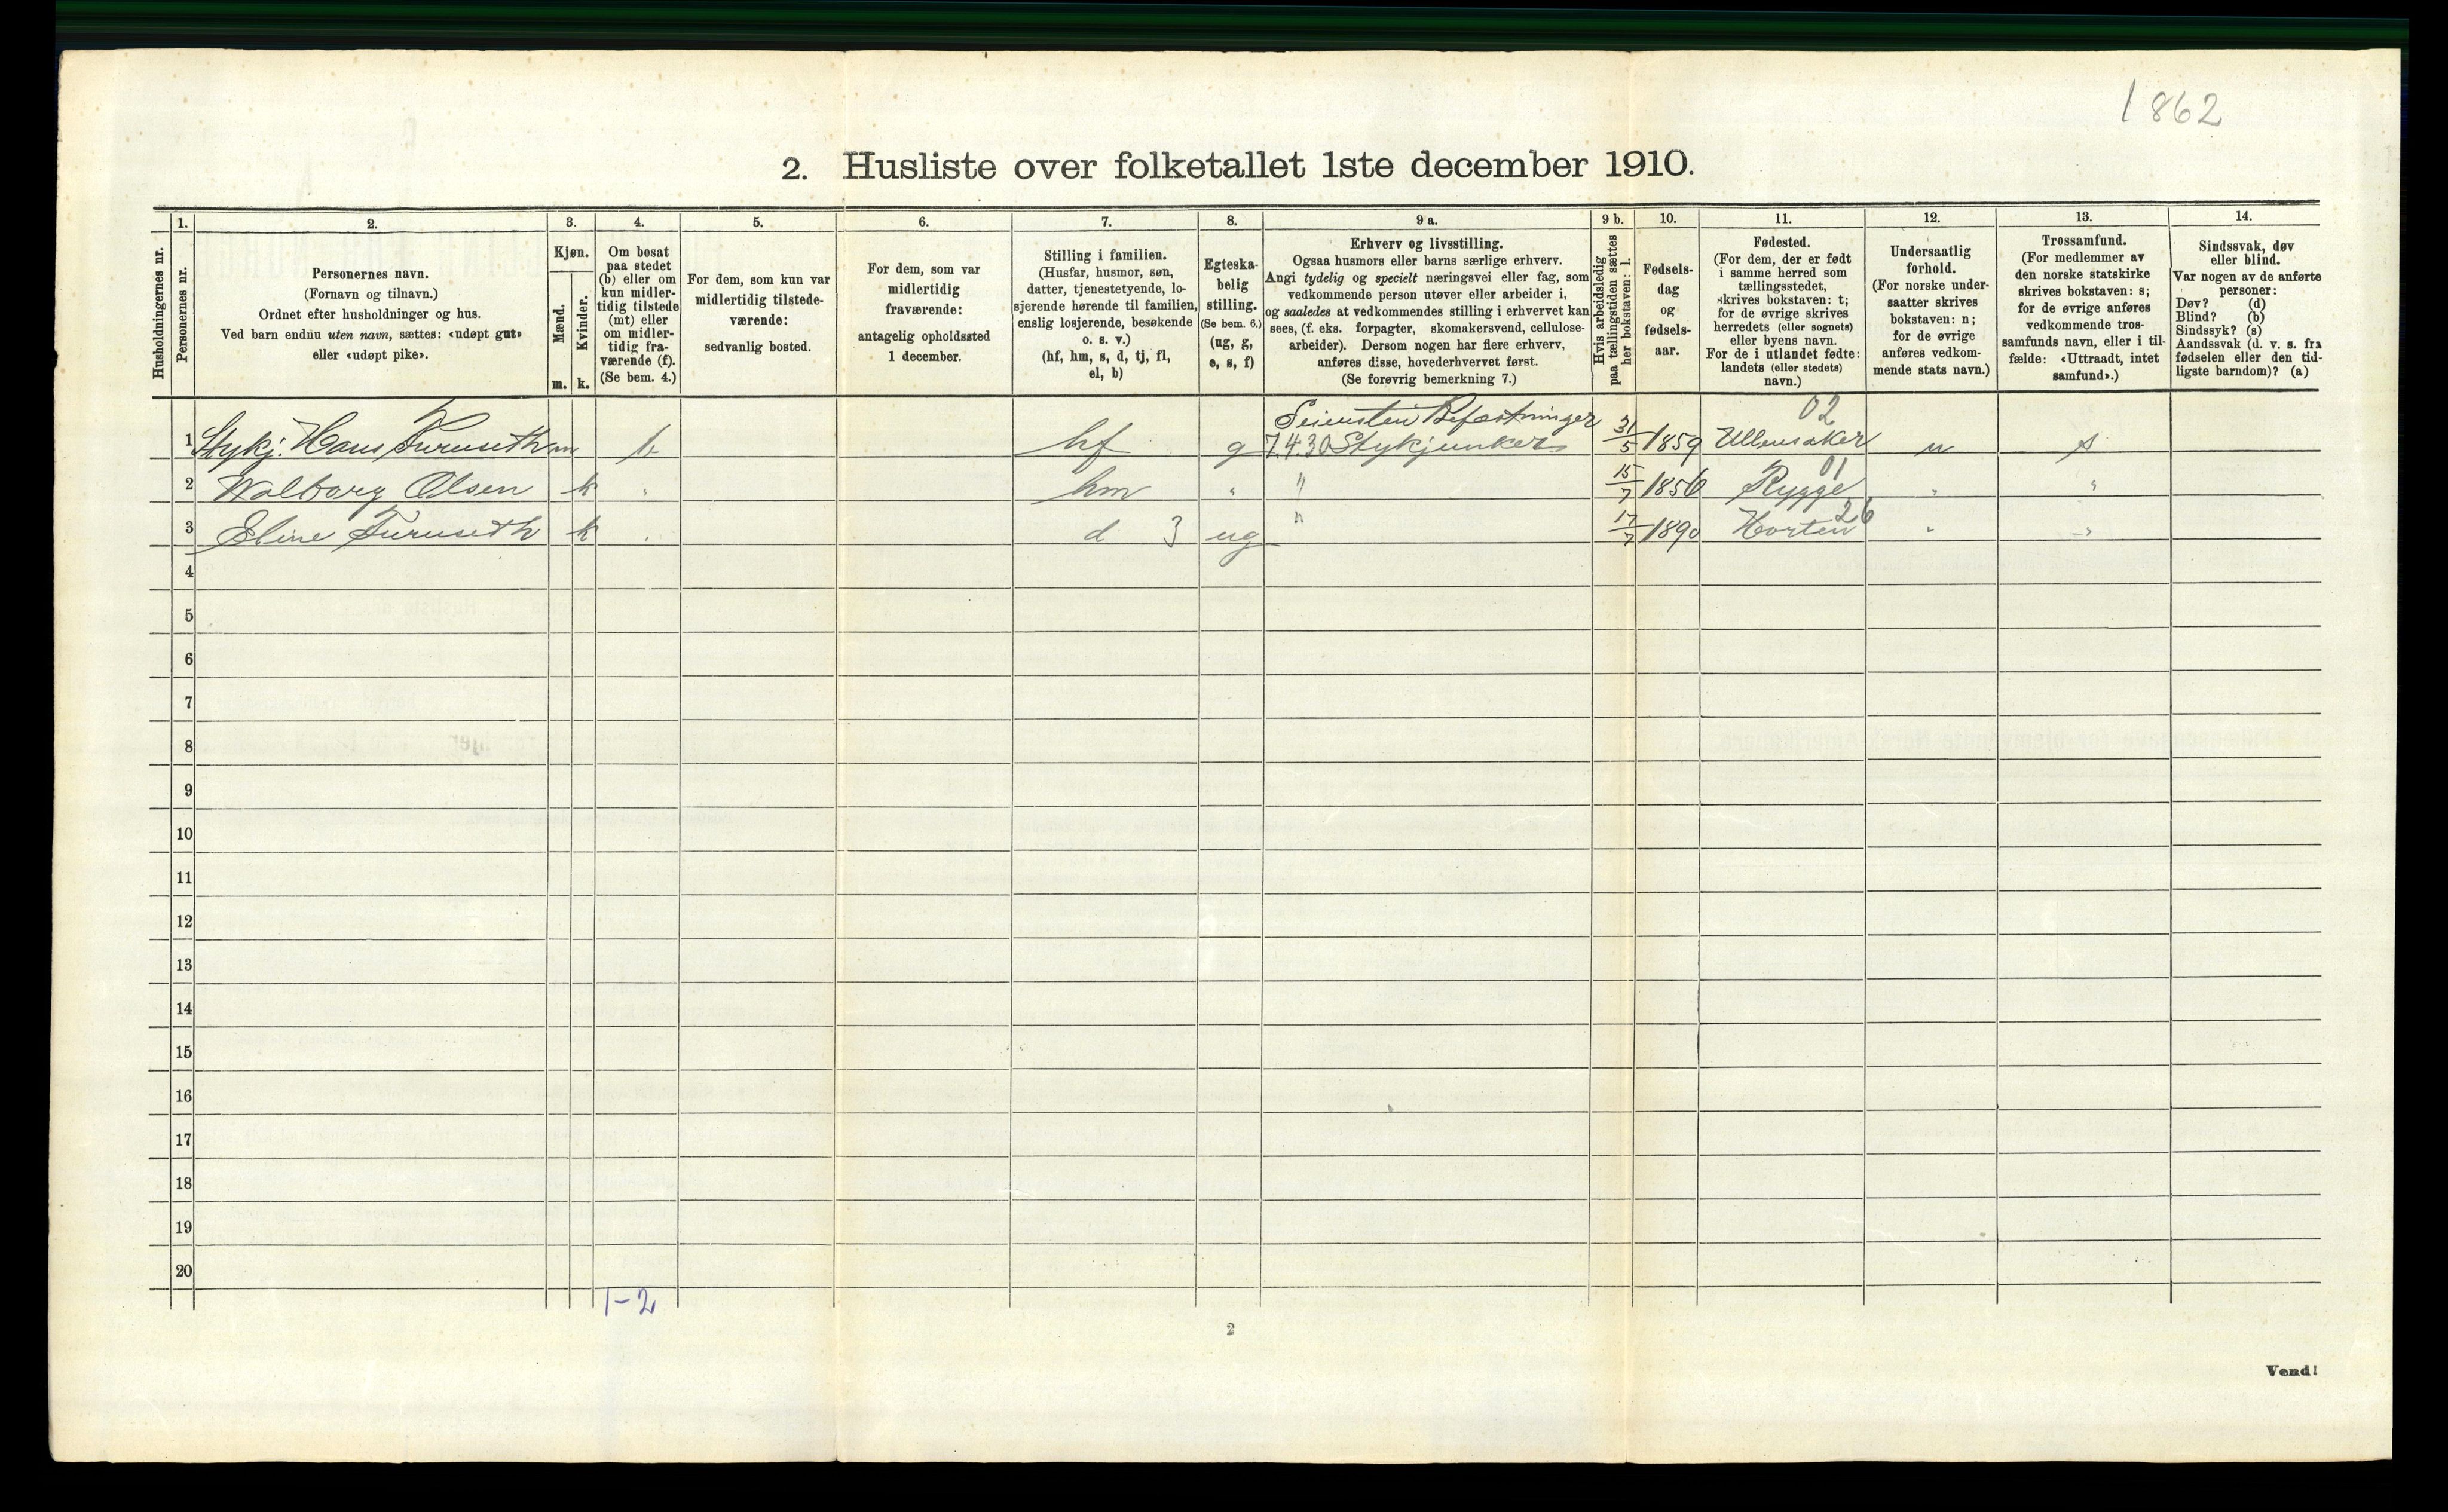 1862
2. Husliste over folketallet 1ste december 1910.
Husholdningernes nr.
1.
Personernes nr.
2.
Personernes navn.
(Fornavn og tilnavn.)
Ordnet efter husholdninger og hus.
Ved barn endnu uten navn, sættes: «udøpt gut»
eller «udøpt pike».
3.
Kjøn.
Mænd.
Kvinder.
m. k.
4.
Om bosat
paa stedet
(b) eller om
kun midler-
tidig tilstede
(mt) eller
om midler-
tidig fra-
værende (f).
(Se bem. 4.)
5.
For dem, som kun var
midlertidig tilstede-
værende:
sedvanlig bosted.
6.
For dem, som var
midlertidig
fraværende:
antagelig opholdssted
1 december.
7.
Stilling i familien.
(Husfar, husmor, søn,
datter, tjenestetyende, lo-
sjerende hørende til familien,
enslig losjerende, besøkende
o. s. v.)
(hf, hm, s, d, tj, fl,
el, b)
8.
Egteska-
belig
stilling.
(Se bem. 6.)
(ug, g,
e, s, f)
9 a.
Erhverv og livsstilling.
Ogsaa husmors eller barns særlige erhverv.
Angi tydelig og specielt næringsvei eller fag, som
vedkommende person utøver eller arbeider i,
og saaledes at vedkommendes stilling i erhvervet kan
sees, (f. eks. forpagter, skomakersvend, cellulose-
arbeider). Dersom nogen har flere erhverv,
anføres disse, hovederhvervet først.
(Se forøvrig bemerkning 7.)
9 b.
Hvis arbeidsledig
paa tællingstiden sættes
her bokstaven: l.
10.
Fødsels-
dag
og
fødsels-
aar.
11.
Fødested.
(For dem, der er født
i samme herred som
tællingsstedet,
skrives bokstaven: t;
for de øvrige skrives
herredets (eller sognets)
eller byens navn.
For de i utlandet fødte:
landets (eller stedets)
navn.)
12.
Undersaatlig
forhold.
(For norske under-
saatter skrives
bokstaven: n;
for de øvrige
anføres vedkom-
mende stats navn.)
13.
Trossamfund.
(For medlemmer av
den norske statskirke
skrives bokstaven: s;
for de øvrige anføres
vedkommende tros-
samfunds navn, eller i til-
fælde: «Uttraadt, intet
samfund».)
14.
Sindssvak, døv
eller blind.
Var nogen av de anførte
personer:
Døv? (d)
Blind? (b)
Sindssyk? (s)
Aandssvak (d. v. s. fra
fødselen eller den tid-
ligste barndom)? (a)
Befæstninger 02
1 Stykj. Hans Furuseth m b hf g 7.4.30 Stykjunker 31/5 1859 Ullensaker n s
01
2 Walborg Olsen k " hm " " 15/7 1856 Rygge " "
26
3 Eline Furuseth k " d 3 ug " 17/7 1890 Horten " "
4
5
6
7
8
9
10
11
12
13
14
15
16
17
18
19
20
1-2
2
Vend!